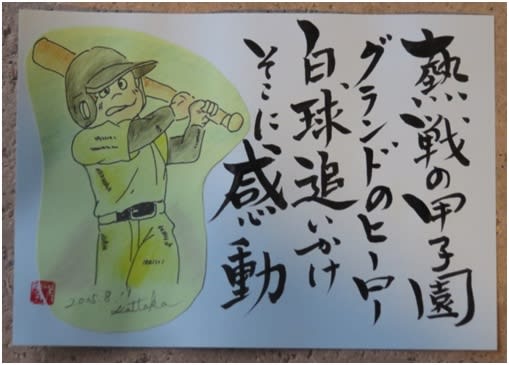 熱い戦の甲子園
グランドのヒーロー
白球追いかけ
そこに、感動
2015.8.